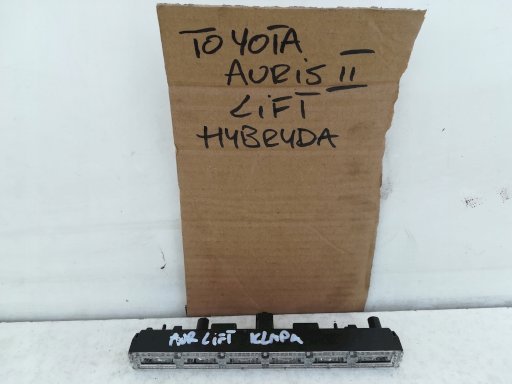 TOYOTA
AURIS II
LIFT
HYBRYDA
AUR LIFT KLAPA